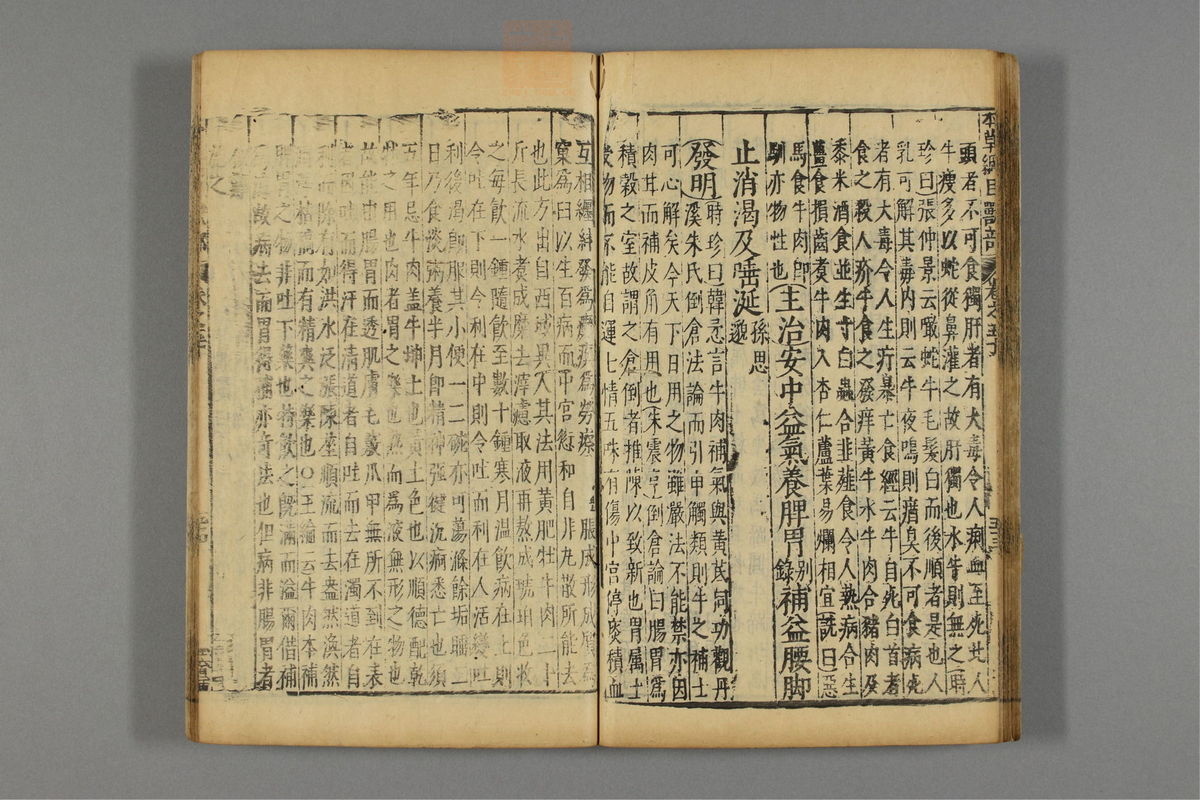 本草綱目獸部
頭者不可食獨肝者有大毒令人痢血至死北人
牛瘦多以蛇從鼻灌之故肝獨也水牛則無之時
珍曰張仲景云噉蛇牛毛髮白而後順者是也人
乳可解其毒內則云牛夜鳴則瘤臭不可食病死
者有大毒令人生疔暴亡食經云牛自死白首者
食之殺人疥牛食之發痒黃牛水牛肉合豬肉及
黍米酒食並生寸白蟲合韭薤食令人熱病合生
薑食損齒煮牛肉入杏仁蘆葉易爛相宜詵曰惡
馬食牛肉即
馴亦物性也主治安中益氣養脾胃別錄補益腰脚
止消渴及唾涎孫思邈
發明時珍曰韓𢘅言牛肉補氣與黃芪同功觀丹
溪朱氏倒倉法論而引申觸類則牛之補土
可心解矣今天下日用之物雖嚴法不能禁亦因
肉甘而補皮角有用也朱震亨倒倉論曰腸胃爲
積穀之室故謂之倉倒者推陳以致新也胃属土
受物而不能自運七情五味有傷中宮停痰積血
互相纏糾發爲癰疽爲勞瘵 脹成形成質
窠爲臼以生百病而中宮愆和自非丸散所能去
也此方出自西域異人其法用黃肥牡牛肉二十
斤長流水煮成糜去滓濾取液再熬成琥珀色收
之每飲一鍾隨飲至數十鍾寒月溫飲病在上則
令吐在下則令利在中則令吐而利在人活變吐
利後渴即服其小便一二碗亦可蕩滌餘垢睡二
日乃食淡粥養半月即精神强健沉痾悉亡也須
五年忌牛肉盖牛坤土也黃土色也以順德配乾
之用也肉者胃之藥也熟而爲液無形之物也
故能由腸胃而透肌膚毛竅爪甲無所不到在表
者因吐而得汗在清道者自吐而去在濁道者自
利而除有如洪水泛漲陳莝順流而去盎然渙然
枯槁而有精爽之樂也○王綸云牛肉本補
之物非吐下藥也特飲之既滿而溢爾借補
故病去而胃得補亦奇法也但病非腸胃者